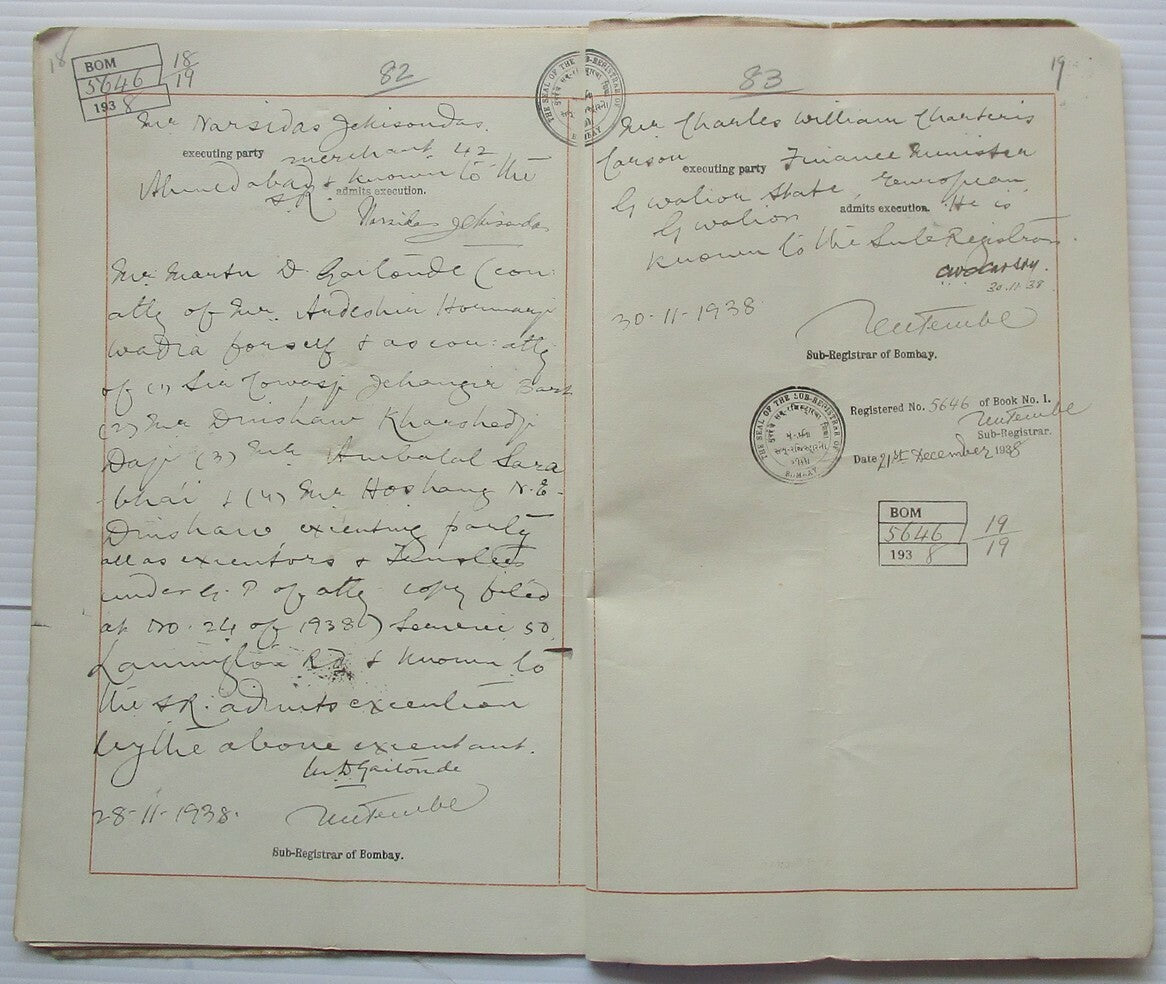 18
BOM
5646
1938
18
19
82
Mr Narsidas Jekisondas.
executing party merchant 42
Ahmedabad & known to the
S.R. admits execution.
Narsidas Jekisondas
Mr. Martu D Gaitonde (con:
atty of Mr. Ardeshir Hormasji
Wadia for self & as con: atty
of (1) Sir Cowasji Jehangir Bart
(2) Mr Dinshaw Kharshedji
Daji (3) Mr. Ambalal Sara
bhai & (4) Mr Hoshang N. E.
Dinshaw executing party
all as executors & Trustees
under G. P of atty copy filed
at No. 24 of 1938) Service 50
Lamington Rd. & known to
the S.R. admits execution
by the above executant.
M. D. Gaitonde
28-11-1938.
Sub-Registrar of Bombay.
THE SEAL OF THE SUB-REGISTRAR OF
BOMBAY
83
19
Mr Charles William Charteris
Carson executing party Finance Minister
Gwalior State, European
Gwalior admits execution. He is
known to the Sub Registrar.
30.11.38
30-11-1938
Sub-Registrar of Bombay.
THE SEAL OF THE SUB-REGISTRAR OF
BOMBAY
Registered No. 5646 of Book No. I.
Sub-Registrar.
Date 21st December 1938
BOM
5646
1938
19
19